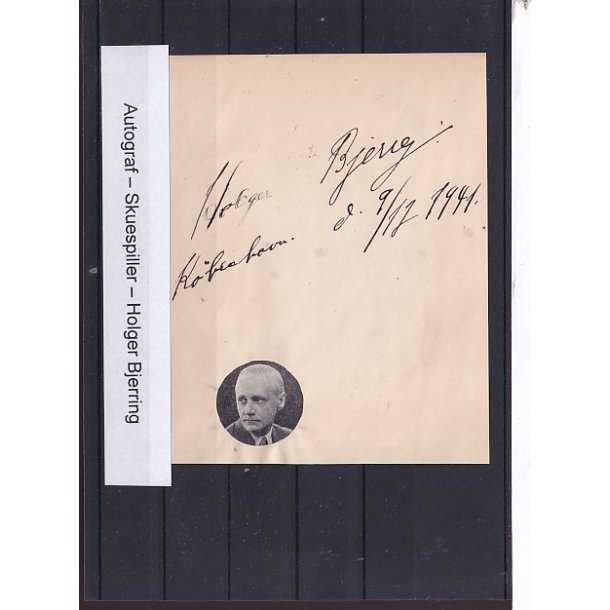 Autograf – Skuespiller – Holger Bjerring
Holger Bjerrg.
København. d. 9/12 1941.